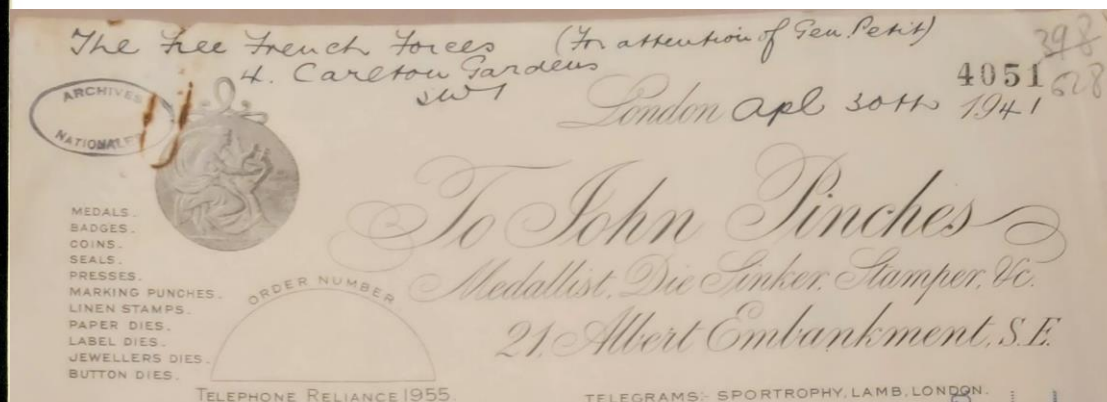 The Free French Forces (For attention of Gen. Petit)
4. Carlton Gardens
SW1
398
628
4051
London Apl 30th 1941
ARCHIVES
NATIONALES
To John Pinches
Medallist, Die Sinker, Stamper, &c.
21, Albert Embankment, S.E.
MEDALS.
BADGES.
COINS.
SEALS.
PRESSES.
MARKING PUNCHES.
LINEN STAMPS.
PAPER DIES.
LABEL DIES.
JEWELLERS DIES.
BUTTON DIES.
ORDER NUMBER
TELEPHONE RELIANCE 1955.
TELEGRAMS:- SPORTROPHY, LAMB, LONDON.